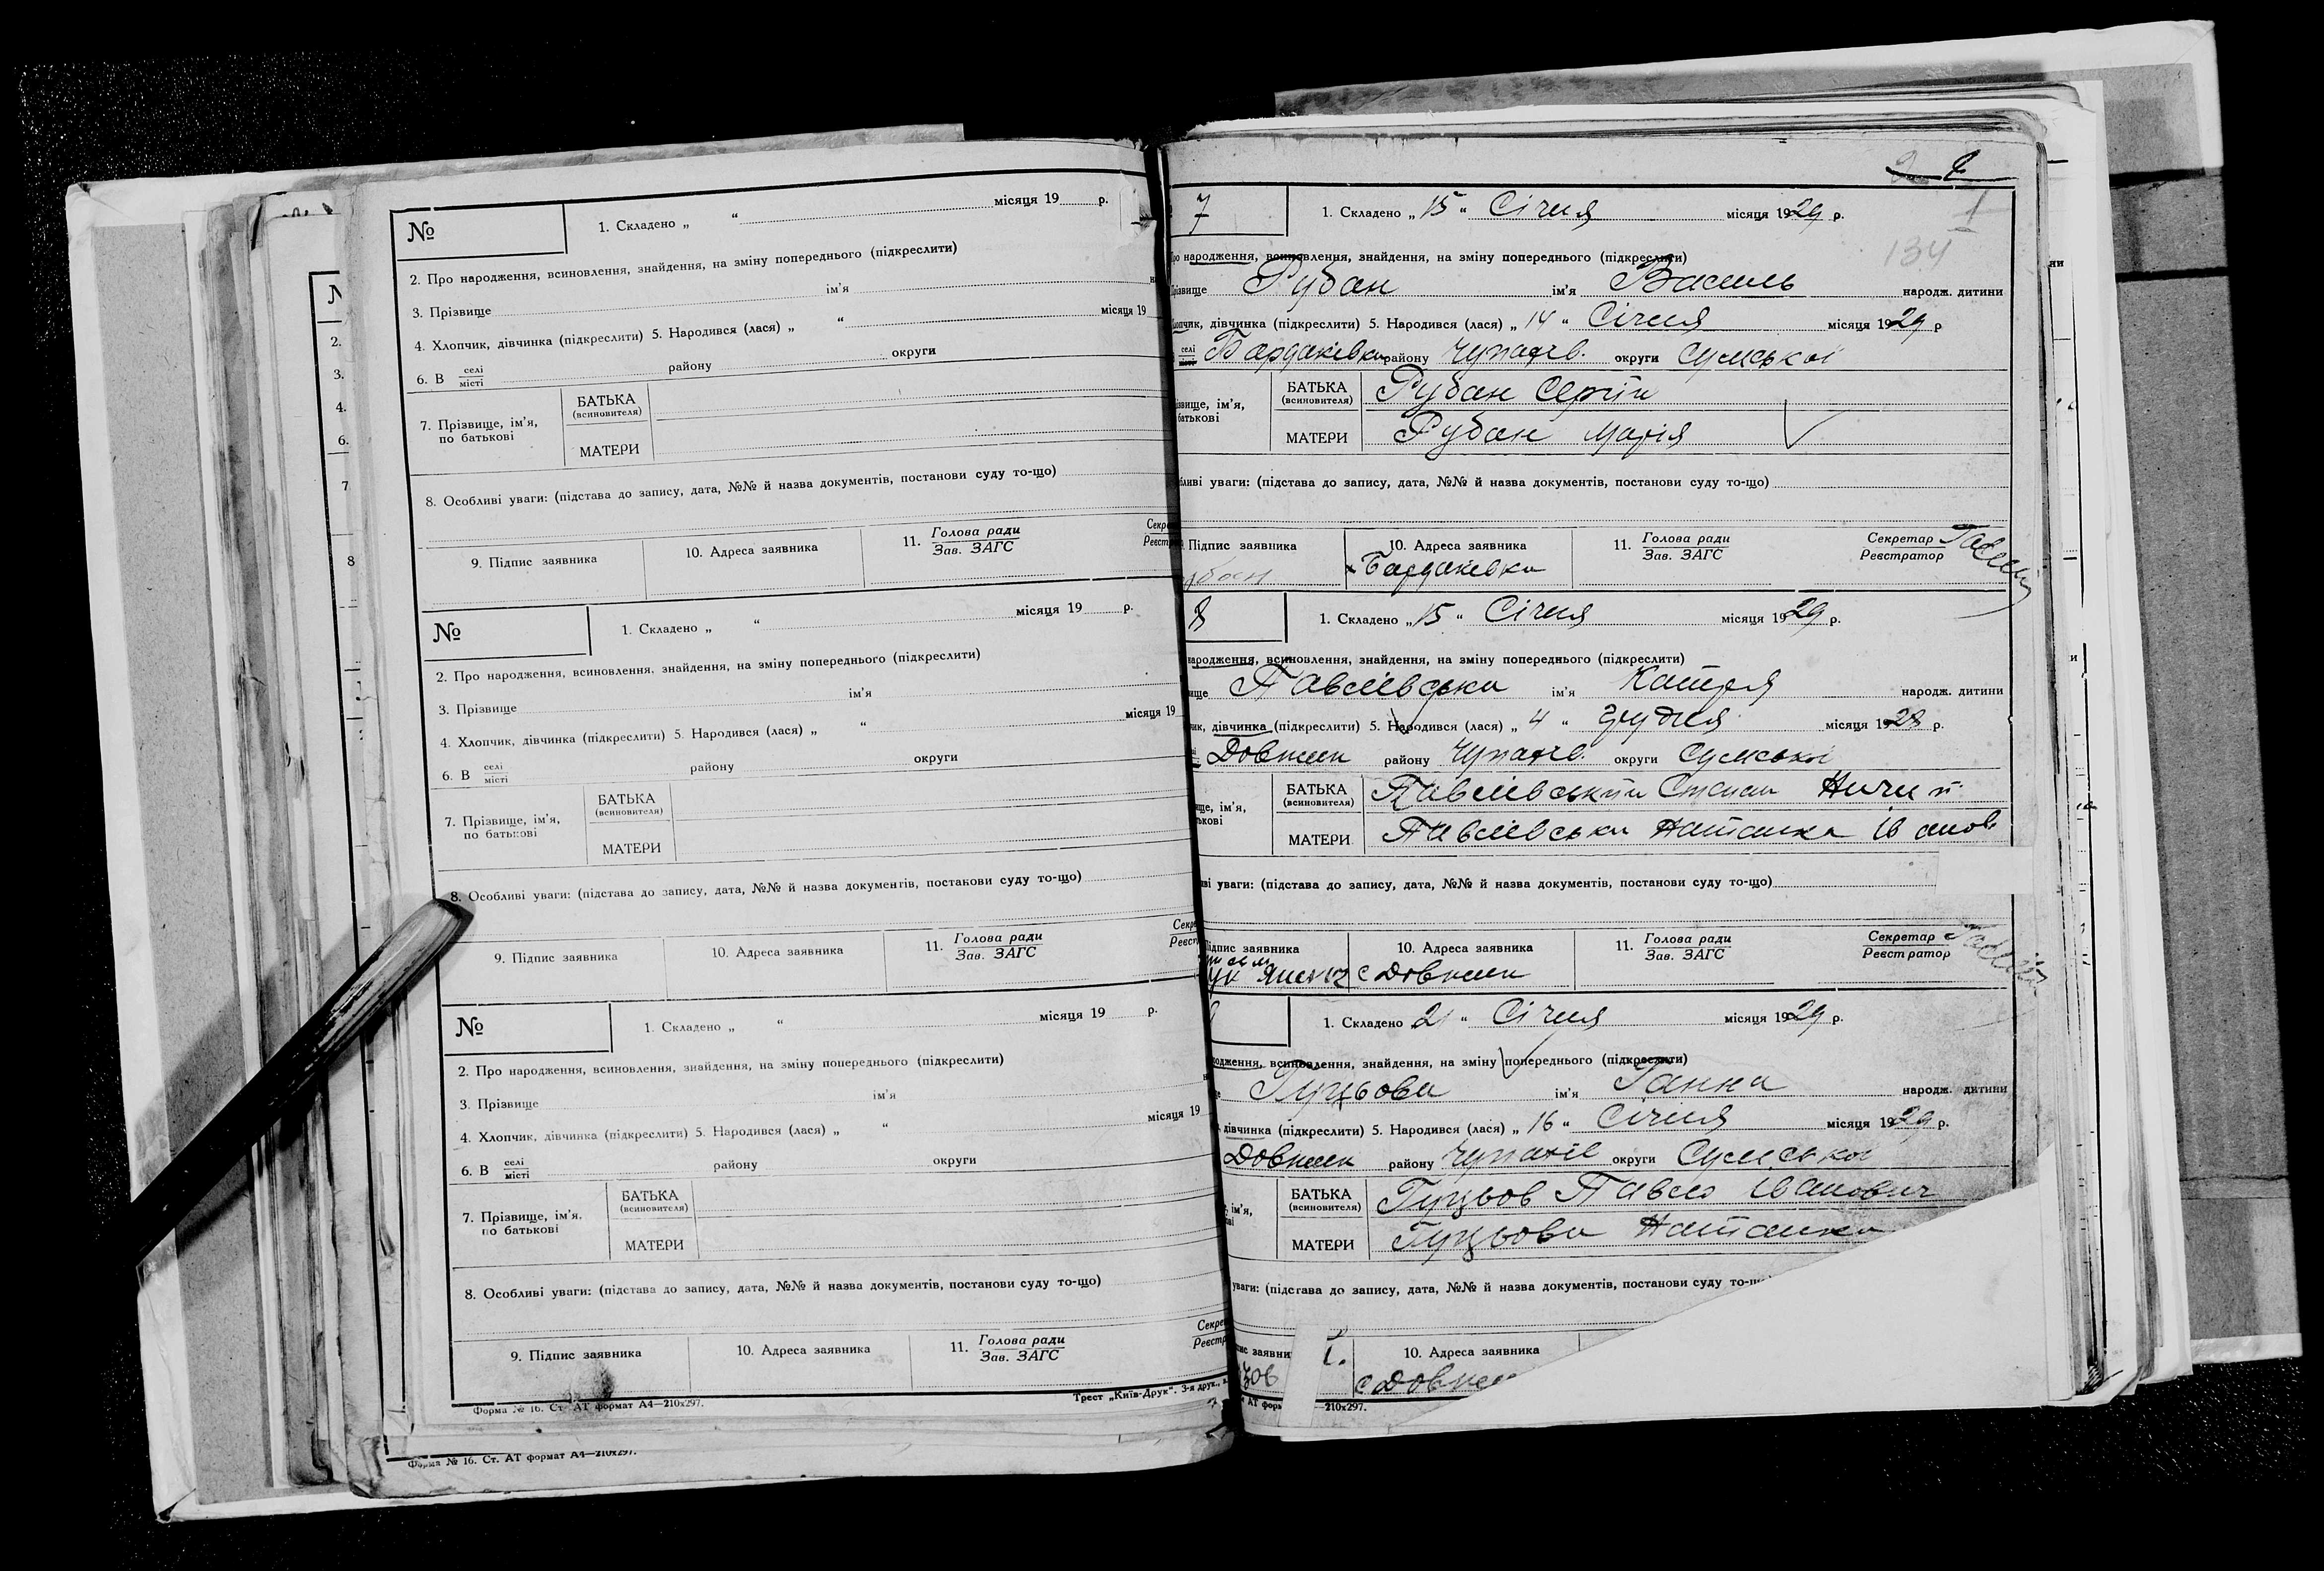 №
1. Складено „ “ місяця 19 р.
2. Про народження, всиновлення, знайдення, на зміну попереднього (підкреслити)
3. Прізвище ім'я
4. Хлопчик, дівчинка (підкреслити) 5. Народився (лася) „ “ місяця 19
6. В селі місті району округи
7. Прізвище, ім'я, по батькові
БАТЬКА (всиновителя)
МАТЕРИ
8. Особливі уваги: (підстава до запису, дата, №№ й назва документів, постанови суду то-що)
9. Підпис заявника 10. Адреса заявника 11. Голова ради Зав. ЗАГС
№
1. Складено „ “ місяця 19 р.
2. Про народження, всиновлення, знайдення, на зміну попереднього (підкреслити)
3. Прізвище ім'я
4. Хлопчик, дівчинка (підкреслити) 5. Народився (лася) „ “ місяця 19
6. В селі місті району округи
7. Прізвище, ім'я, по батькові
БАТЬКА (всиновителя)
МАТЕРИ
8. Особливі уваги: (підстава до запису, дата, №№ й назва документів, постанови суду то-що)
9. Підпис заявника 10. Адреса заявника 11. Голова ради Зав. ЗАГС
№
1. Складено „ “ місяця 19 р.
2. Про народження, всиновлення, знайдення, на зміну попереднього (підкреслити)
3. Прізвище ім'я
4. Хлопчик, дівчинка (підкреслити) 5. Народився (лася) „ “ місяця 19
6. В селі місті району округи
7. Прізвище, ім'я, по батькові
БАТЬКА (всиновителя)
МАТЕРИ
8. Особливі уваги: (підстава до запису, дата, №№ й назва документів, постанови суду то-що)
9. Підпис заявника 10. Адреса заявника 11. Голова ради Зав. ЗАГС
Форма № 16. Ст. АТ формат А4—210х297. Трест „Київ-Друк“. 3-я друк.
Форма № 16. Ст. АТ формат А4—210х297.
7
1. Складено „ 15 “ Січня місяця 1929 р.
1
134
народження, всиновлення, знайдення, на зміну попереднього (підкреслити)
Рубан ім'я Василь народж. дитини
дівчинка (підкреслити) 5. Народився (лася) „ 14 “ Січня місяця 1929 р
селі місті Бардаківка району Чупахів. округи Сумської
БАТЬКА (всиновителя) Рубан Сергій
ім'я, батькові
МАТЕРИ Рубан Марія
уваги: (підстава до запису, дата, №№ й назва документів, постанови суду то-що)
Підпис заявника 10. Адреса заявника 11. Голова ради Зав. ЗАГС Секретар Реєстратор
х Бардаківка
8
1. Складено „ 15 “ Січня місяця 1929 р.
народження, всиновлення, знайдення, на зміну попереднього (підкреслити)
Павлівська ім'я Катря народж. дитини
дівчинка (підкреслити) 5. Народився (лася) „ 4 “ грудня місяця 1928 р.
Довжик району Чупахів. округи Сумської
БАТЬКА (всиновителя) Павлівський Степан
ім'я,
МАТЕРИ Павлівська Наталка Іванов
уваги: (підстава до запису, дата, №№ й назва документів, постанови суду то-що)
Підпис заявника 10. Адреса заявника 11. Голова ради Зав. ЗАГС Секретар Реєстратор
с Довжик
1. Складено 21 “ Січня місяця 1929 р.
всиновлення, знайдення, на зміну попереднього (підкреслити)
Гуцьова ім'я Ганна народж. дитини
дівчинка (підкреслити) 5. Народився (лася) „ 16 “ Січня місяця 1929 р.
Довжик району Чупахів округи Сумської
БАТЬКА (всиновителя) Гуцьов Павло Іванович
ім'я,
МАТЕРИ Гуцьова Наталка
уваги: (підстава до запису, дата, №№ й назва документів, постанови суду
10. Адреса заявника
с Довжик
210х297.